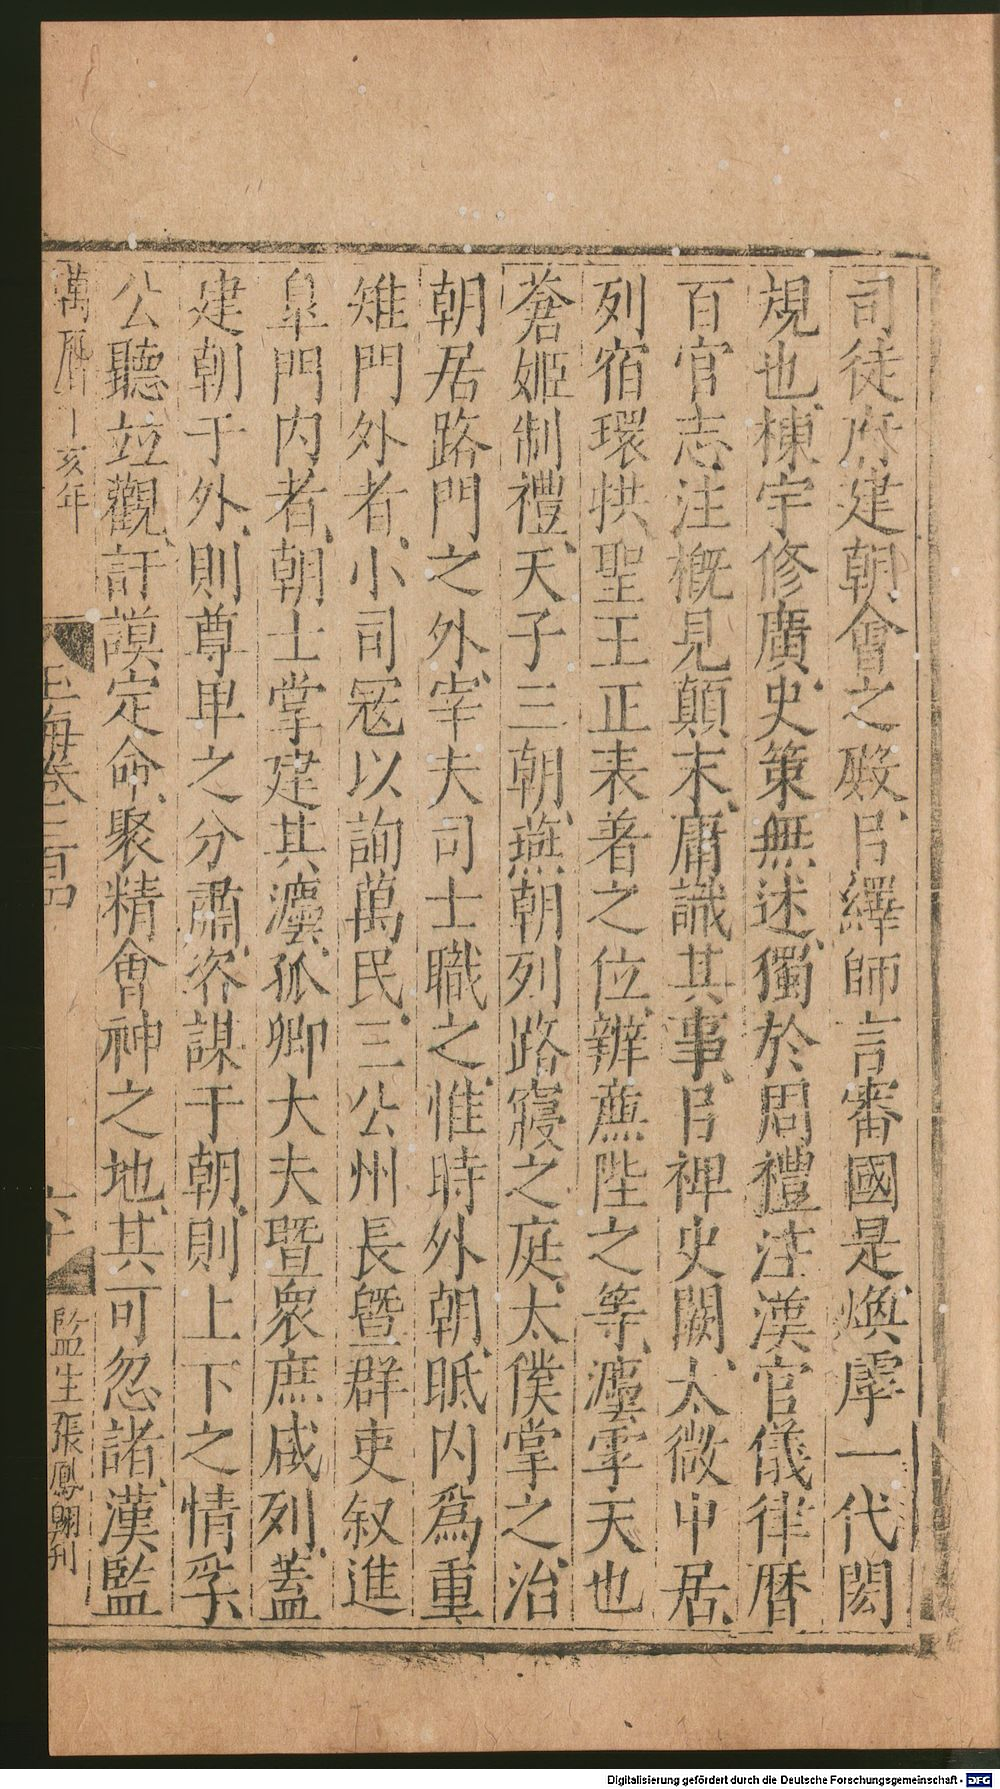 司徒府建朝會之殿㠯繹師言審國是煥虖一代閎
規也棟宇修廣史策無述獨於周禮注漢官儀律曆
百官志注槪見顚末庸識其事㠯裨史闕太微中居
列宿環拱聖王正表著之位辨廉陛之等灋雩天也
蒼姬制禮天子三朝燕朝列路寢之庭太僕掌之治
朝居路門之外宰夫司士職之惟時外朝眡內爲重
雉門外者小司寇以詢萬民三公州長曁群吏叙進
臯門内者朝士掌建其灋孤卿大夫曁衆庶咸列蓋
建朝于外則尊卑之分肅咨謀于朝則上下之情孚
公聽竝觀訏謨定命聚精會神之地其可忽諸漢監
萬曆 亥年
玉海卷二百四
監生張鳳翮刊
Digitalisierung gefördert durch die Deutsche Forschungsgemeinschaft - DFG